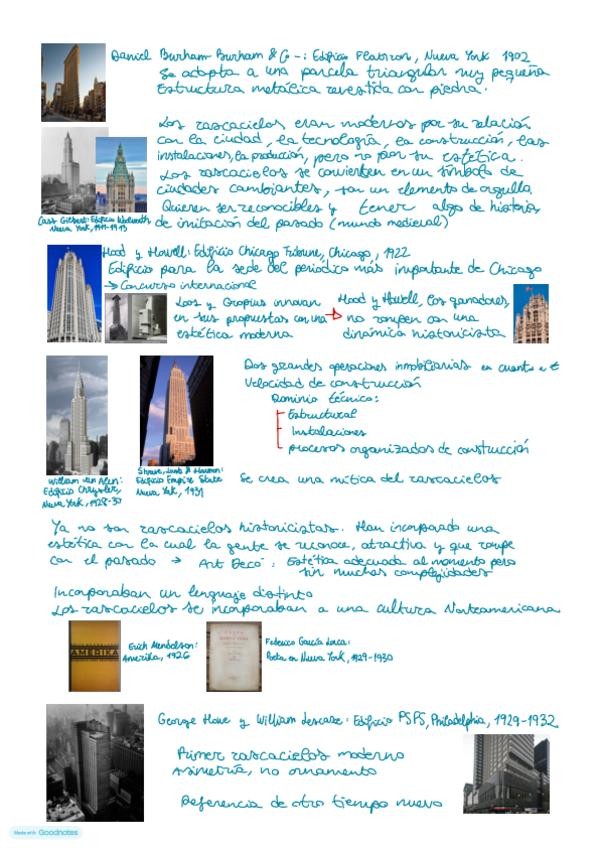 Daniel Burham Burham & Co -: Edificio Flatiron, Nueva York 1902
Se adapta a una parcela triangular muy pequeña
Estructura metálica revestida con piedra.
Los rascacielos eran modernos por su relación
con la ciudad, la tecnología, la construcción, las
instalaciones, la producción, pero no por su estética.
Los rascacielos se convierten en un símbolo de
ciudades cambiantes, son un elemento de orgullo.
Quieren ser reconocibles y tener algo de historia,
de imitación del pasado (mundo medieval)
Cass Gilbert: Edificio Woolworth,
Nueva York, 1911-1913
Hood y Howell: Edificio Chicago Tribune, Chicago, 1922
Edificio para la sede del periódico más importante de Chicago
→ Concurso internacional
Loos y Gropius innovan
en sus propuestas con una
estética moderna
Hood y Howell, los ganadores,
no rompen con una
dinámica historicista
Dos grandes operaciones inmobiliarias en cuanto a €
Velocidad de construcción
Dominio técnico:
Estructural
Instalaciones
procesos organizados de construcción
Se crea una mítica del rascacielos
William van Alen:
Edificio Chrysler,
Nueva York, 1928-30
Shreve, Lamb & Harmon:
Edificio Empire State
Nueva York, 1931
Ya no son rascacielos historicistas. Han incorporado una
estética con la cual la gente se reconoce, atractiva y que rompe
con el pasado → Art Decó: Estética adecuada al momento pero
sin muchas complejidades
Incorporaban un lenguaje distinto
Los rascacielos se incorporaban a una cultura Norteamericana
AMERIKA
Erich Mendelson:
Amerika, 1926
Federico García Lorca:
Poeta en Nueva York, 1929-1930
George Howe y William Lescaze: Edificio PSFS, Philadelphia, 1929-1932
Primer rascacielos moderno
Asimetría, no ornamento
Referencia de otro tiempo nuevo
Made with Goodnotes